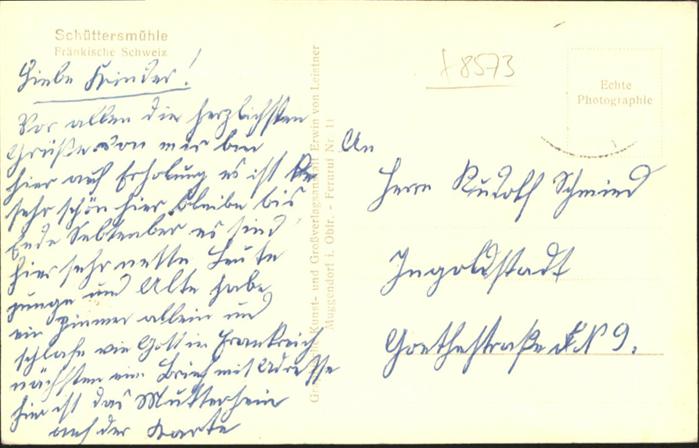 Schüttersmühle
Fränkische Schweiz
Liebe Kinder!
Vor allen die herzlichsten
Grüße von mir bin
hier auf Erholung es ist
sehr schön hier bleibe bis
Ende September es sind
hier sehr nette Leute
junge und Alte habe
ein Zimmer allein und
schlafe wie Gott in Frankreich
nächsten ein Brief mit Adresse
hier ist das Mutterheim
auf der Karte
Kunst- und Großverlagsanstalt Erwin von Leistner
Muggendorf i. Obfr. - Fernruf Nr. 11
8573
Echte
Photographie
An
Herrn Rudolf Schmied
Ingolstadt
Goethestraße N 9.